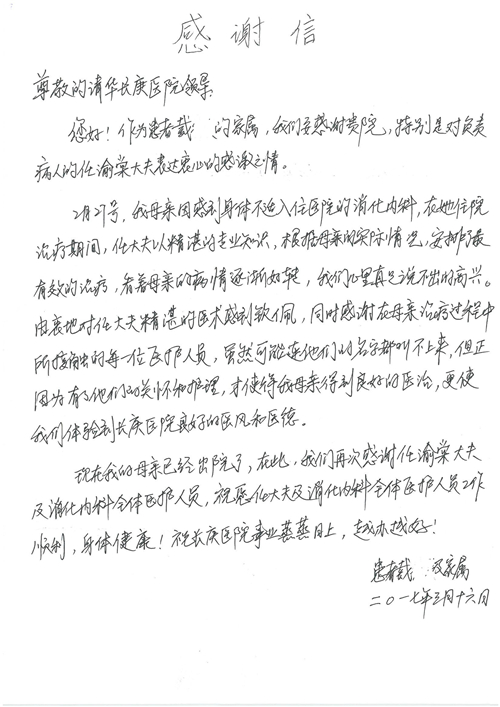 感谢信
尊敬的清华长庚医院领导:
您好！作为患者戴 的家属，我们要感谢贵院，特别是对负责
病人的任渝棠大夫表达衷心的感谢之情。
2月27号，我母亲因感到身体不适入住医院的消化内科，在她住院
治疗期间，任大夫以精湛的专业知识，根据母亲的实际情况，安排了最
有效的治疗，看着母亲的病情逐渐好转，我们心里真是说不出的高兴。
由衷地对任大夫精湛的医术感到钦佩，同时感谢在母亲治疗过程中
所接触的每一位医护人员，虽然可能连他们的名字都叫不上来，但正
因为有了他们的关怀和护理，才使得我母亲得到良好的医治，更使
我们体验到长庚医院良好的医风和医德。
现在我的母亲已经出院了，在此，我们再次感谢任渝棠大夫
及消化内科全体医护人员，祝愿任大夫及消化内科全体医护人员工作
顺利，身体健康！祝长庚医院事业蒸蒸日上，越办越好！
患者戴 及家属
二〇一七年三月十六日